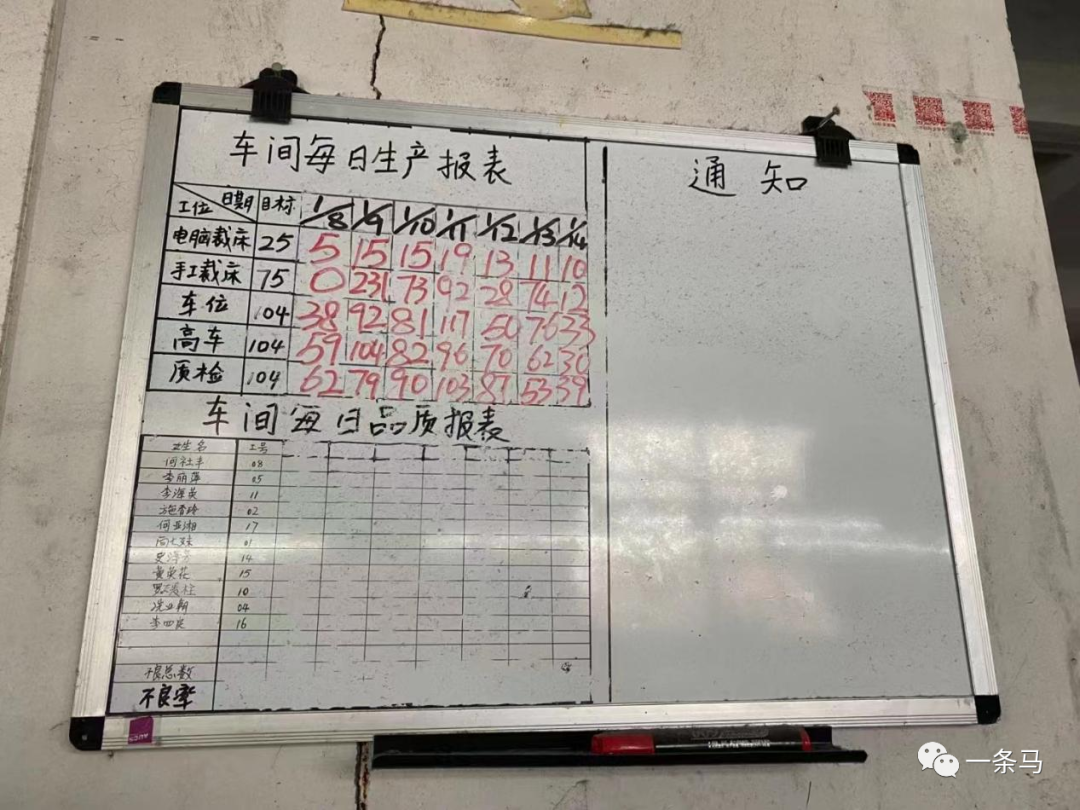 车间每日生产报表
通知
日期 工位 目标 1/8 1/9 1/10 1/11 1/12 1/13 1/14
电脑裁床 25 5 15 15 19 13 11 10
手工裁床 75 0 231 73 92 28 74 12
车位 104 38 92 81 117 50 76 33
高车 104 59 104 82 96 70 62 30
质检 104 62 79 90 103 87 53 39
车间每日品质报表
姓名 工号
08
李丽萍 05
李海英 11
02
何亚湘 17
01
14
黄英花 15
10
04
李四英 16
不良总数
不良率
一条马